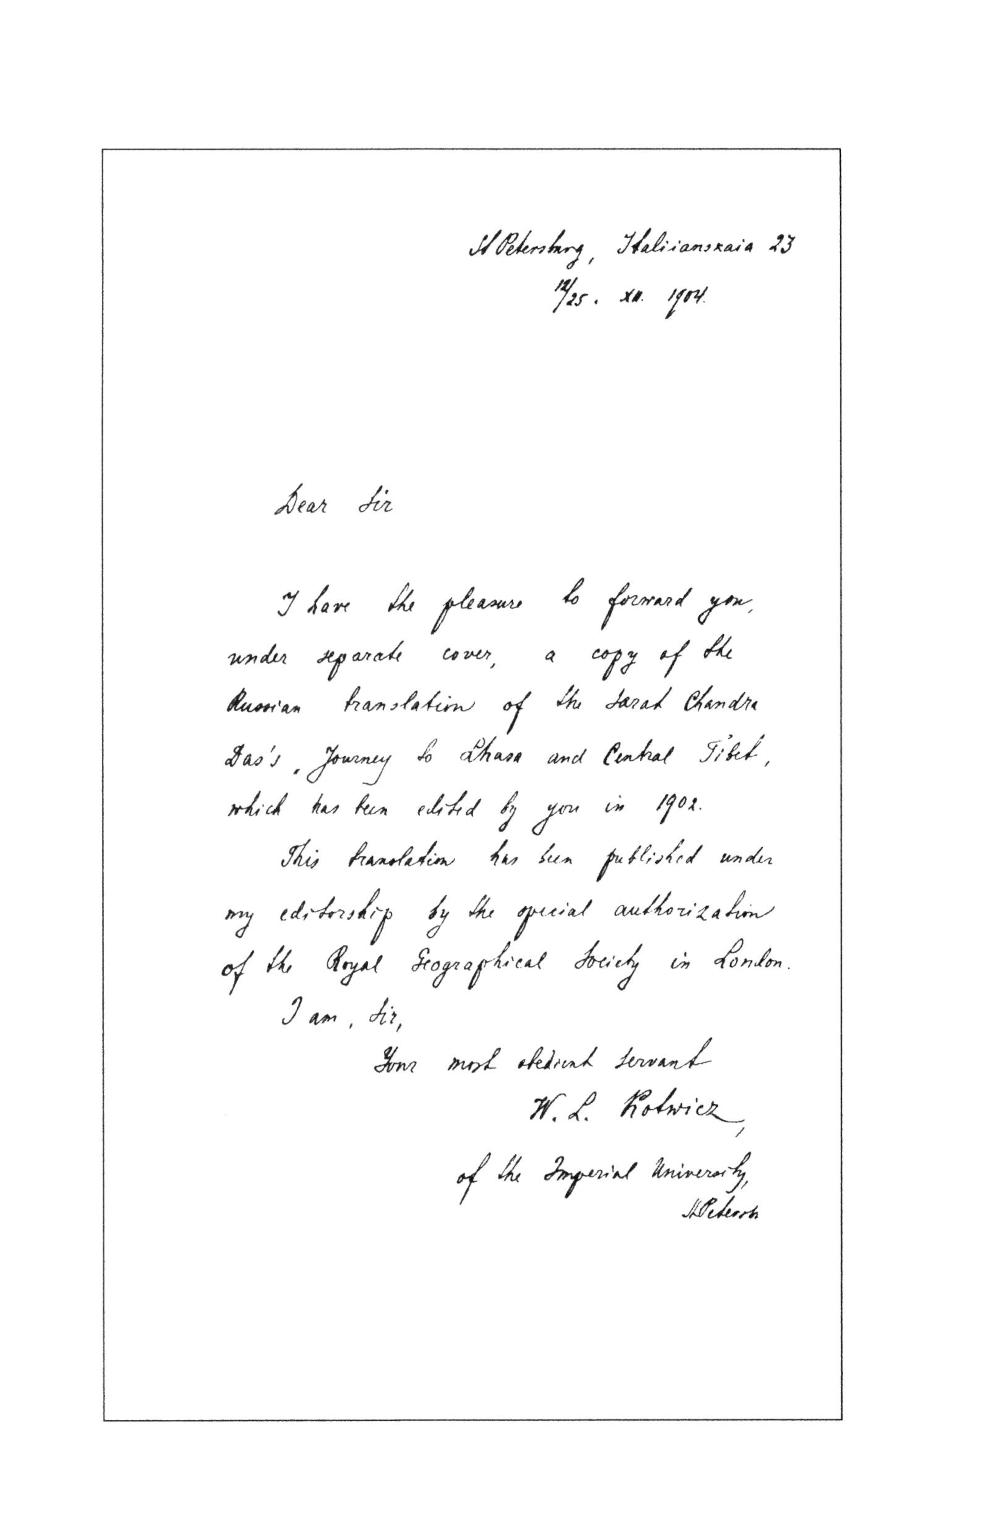 St Petersburg, Italiianskaia 23
12/25. XII. 1904.
Dear Sir
I have the pleasure to forward you,
under separate cover, a copy of the
Russian translation of the Sarat Chandra
Das's „Journey to Lhasa and Central Tibet,
which has been edited by you in 1902.
This translation has been published under
my editorship by the special authorization
of the Royal Geographical Society in London.
I am, Sir,
Your most obedient servant
W. L. Kotwicz,
of the Imperial University,
St Petersb